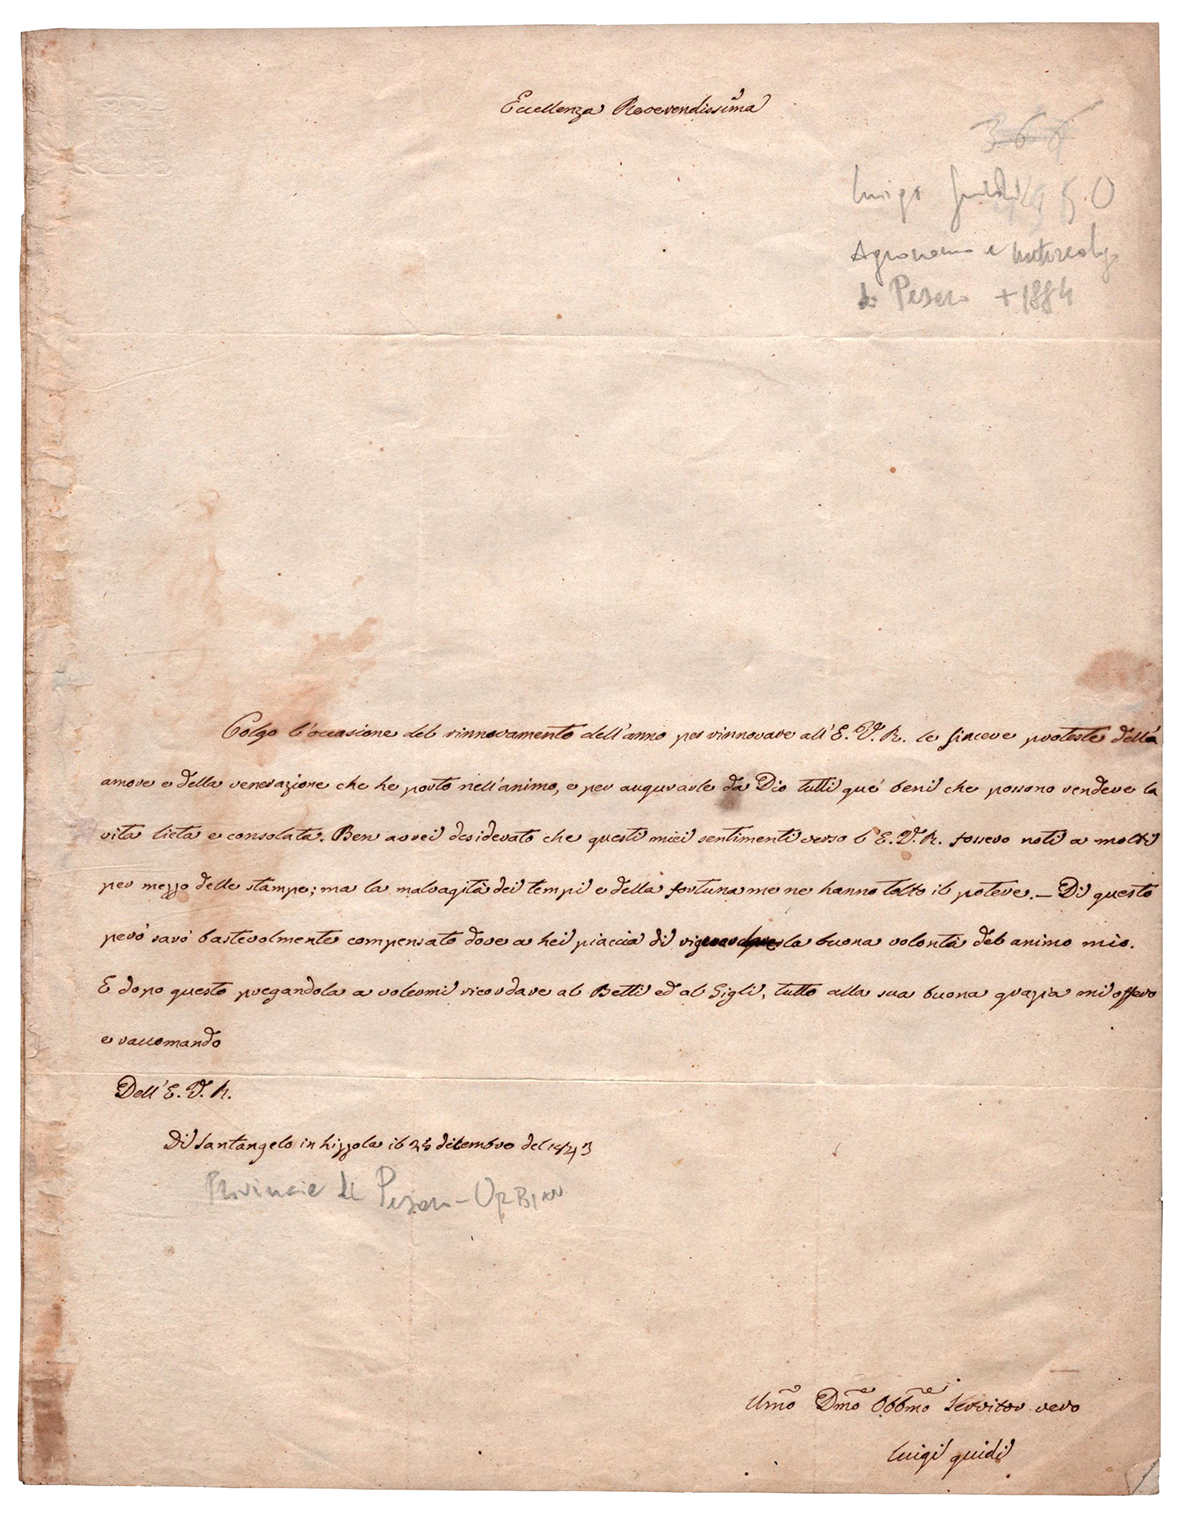 Eccellenza Reverendissima
366
Luigi Guidi
Agronomo e meteorologo
di Pesaro +1884
Colgo l'occasione del rinnovamento dell'anno per rinnovare all'E. V. R. le sincere proteste dell'
amore e della venerazione che le porto nell'animo, e per augurarle da Dio tutti que' beni che possono rendere la
vita lieta e consolata. Ben avrei desiderato che questi miei sentimenti verso l'E. V. R. fossero noti a molti
per mezzo delle stampe; ma la malvagità dei tempi e della fortuna me ne hanno tolto il potere. — Di questo
però sarò bastevolmente compensato dove a Lei piaccia di la buona volontà del animo mio.
E dopo questo pregandola a volermi ricordare al Betti ed al Gigli, tutto alla sua buona grazia mi offero
e raccomando
Dell'E. V. R.
Di Santangelo in Lizzola il 25 dicembre del 1843
Provincia di Pesaro-Urbino
Umo Dmo Obbmo Servitor vero
Luigi Guidi